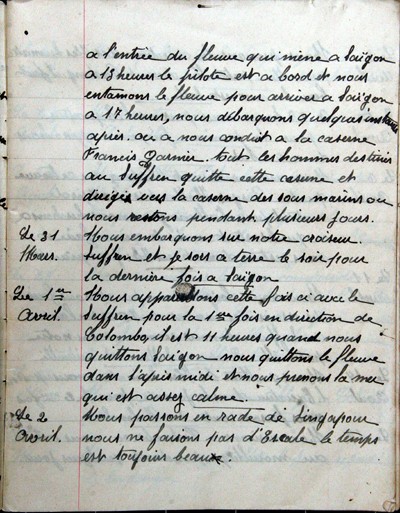 a l'entrée du fleuve qui mène a Saïgon
a 13 heures le pilote est a bord et nous
entamons le fleuve pour arriver a Saïgon
a 17 heures, nous débarquons quelques instants
après. on a nous conduit a la caserne
Francis Garnier. tout les hommes destinés
au Suffren quitte cette caserne et
dirigés vers la caserne des sous marins ou
nous restons pendant plusieurs jours.
Le 31 Nous embarquons sur notre croiseur.
Mars. Suffren et je sors a terre le soir pour
la dernière fois a Saïgon
Le 1er Nous appareillons cette fois ci avec le
Avril. Suffren pour la 1ere fois en direction de
Colombo, il est 11 heures quand nous
quittons Saïgon nous quittons le fleuve
dans l'après midi et nous prenons la mer
qui est assez calme.
Le 2 Nous passons en rade de Singapour
Avril. nous ne faisons pas d'Escale le temps
est toujours beau.